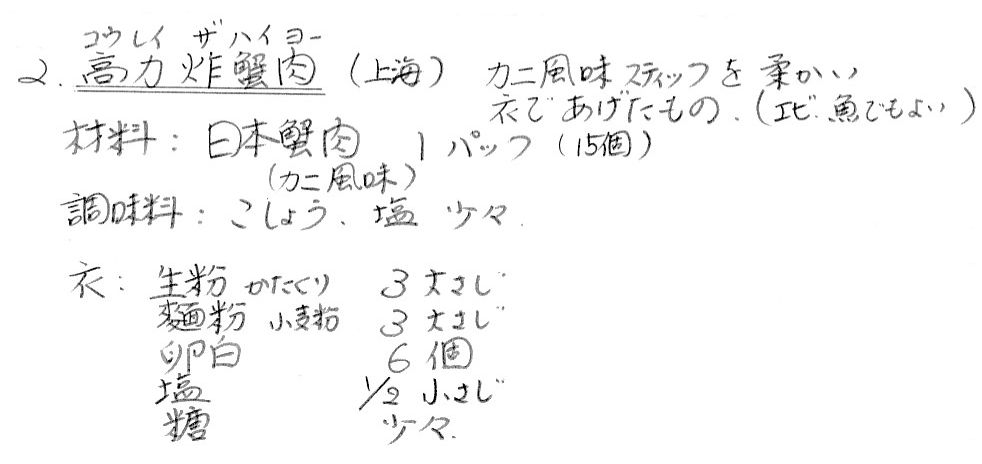 コウレイ ザハイヨー
2. 高力炸蟹肉 (上海) カニ風味スティックを柔かい
衣であげたもの. (エビ.魚でもよい)
材料: 日本蟹肉 1パック (15個)
(カニ風味)
調味料: こしょう、塩 少々.
衣: 生粉 かたくり 3 大さじ
麺粉 小麦粉 3 大さじ
卵白 6個
塩 1/2 小さじ
糖 少々.